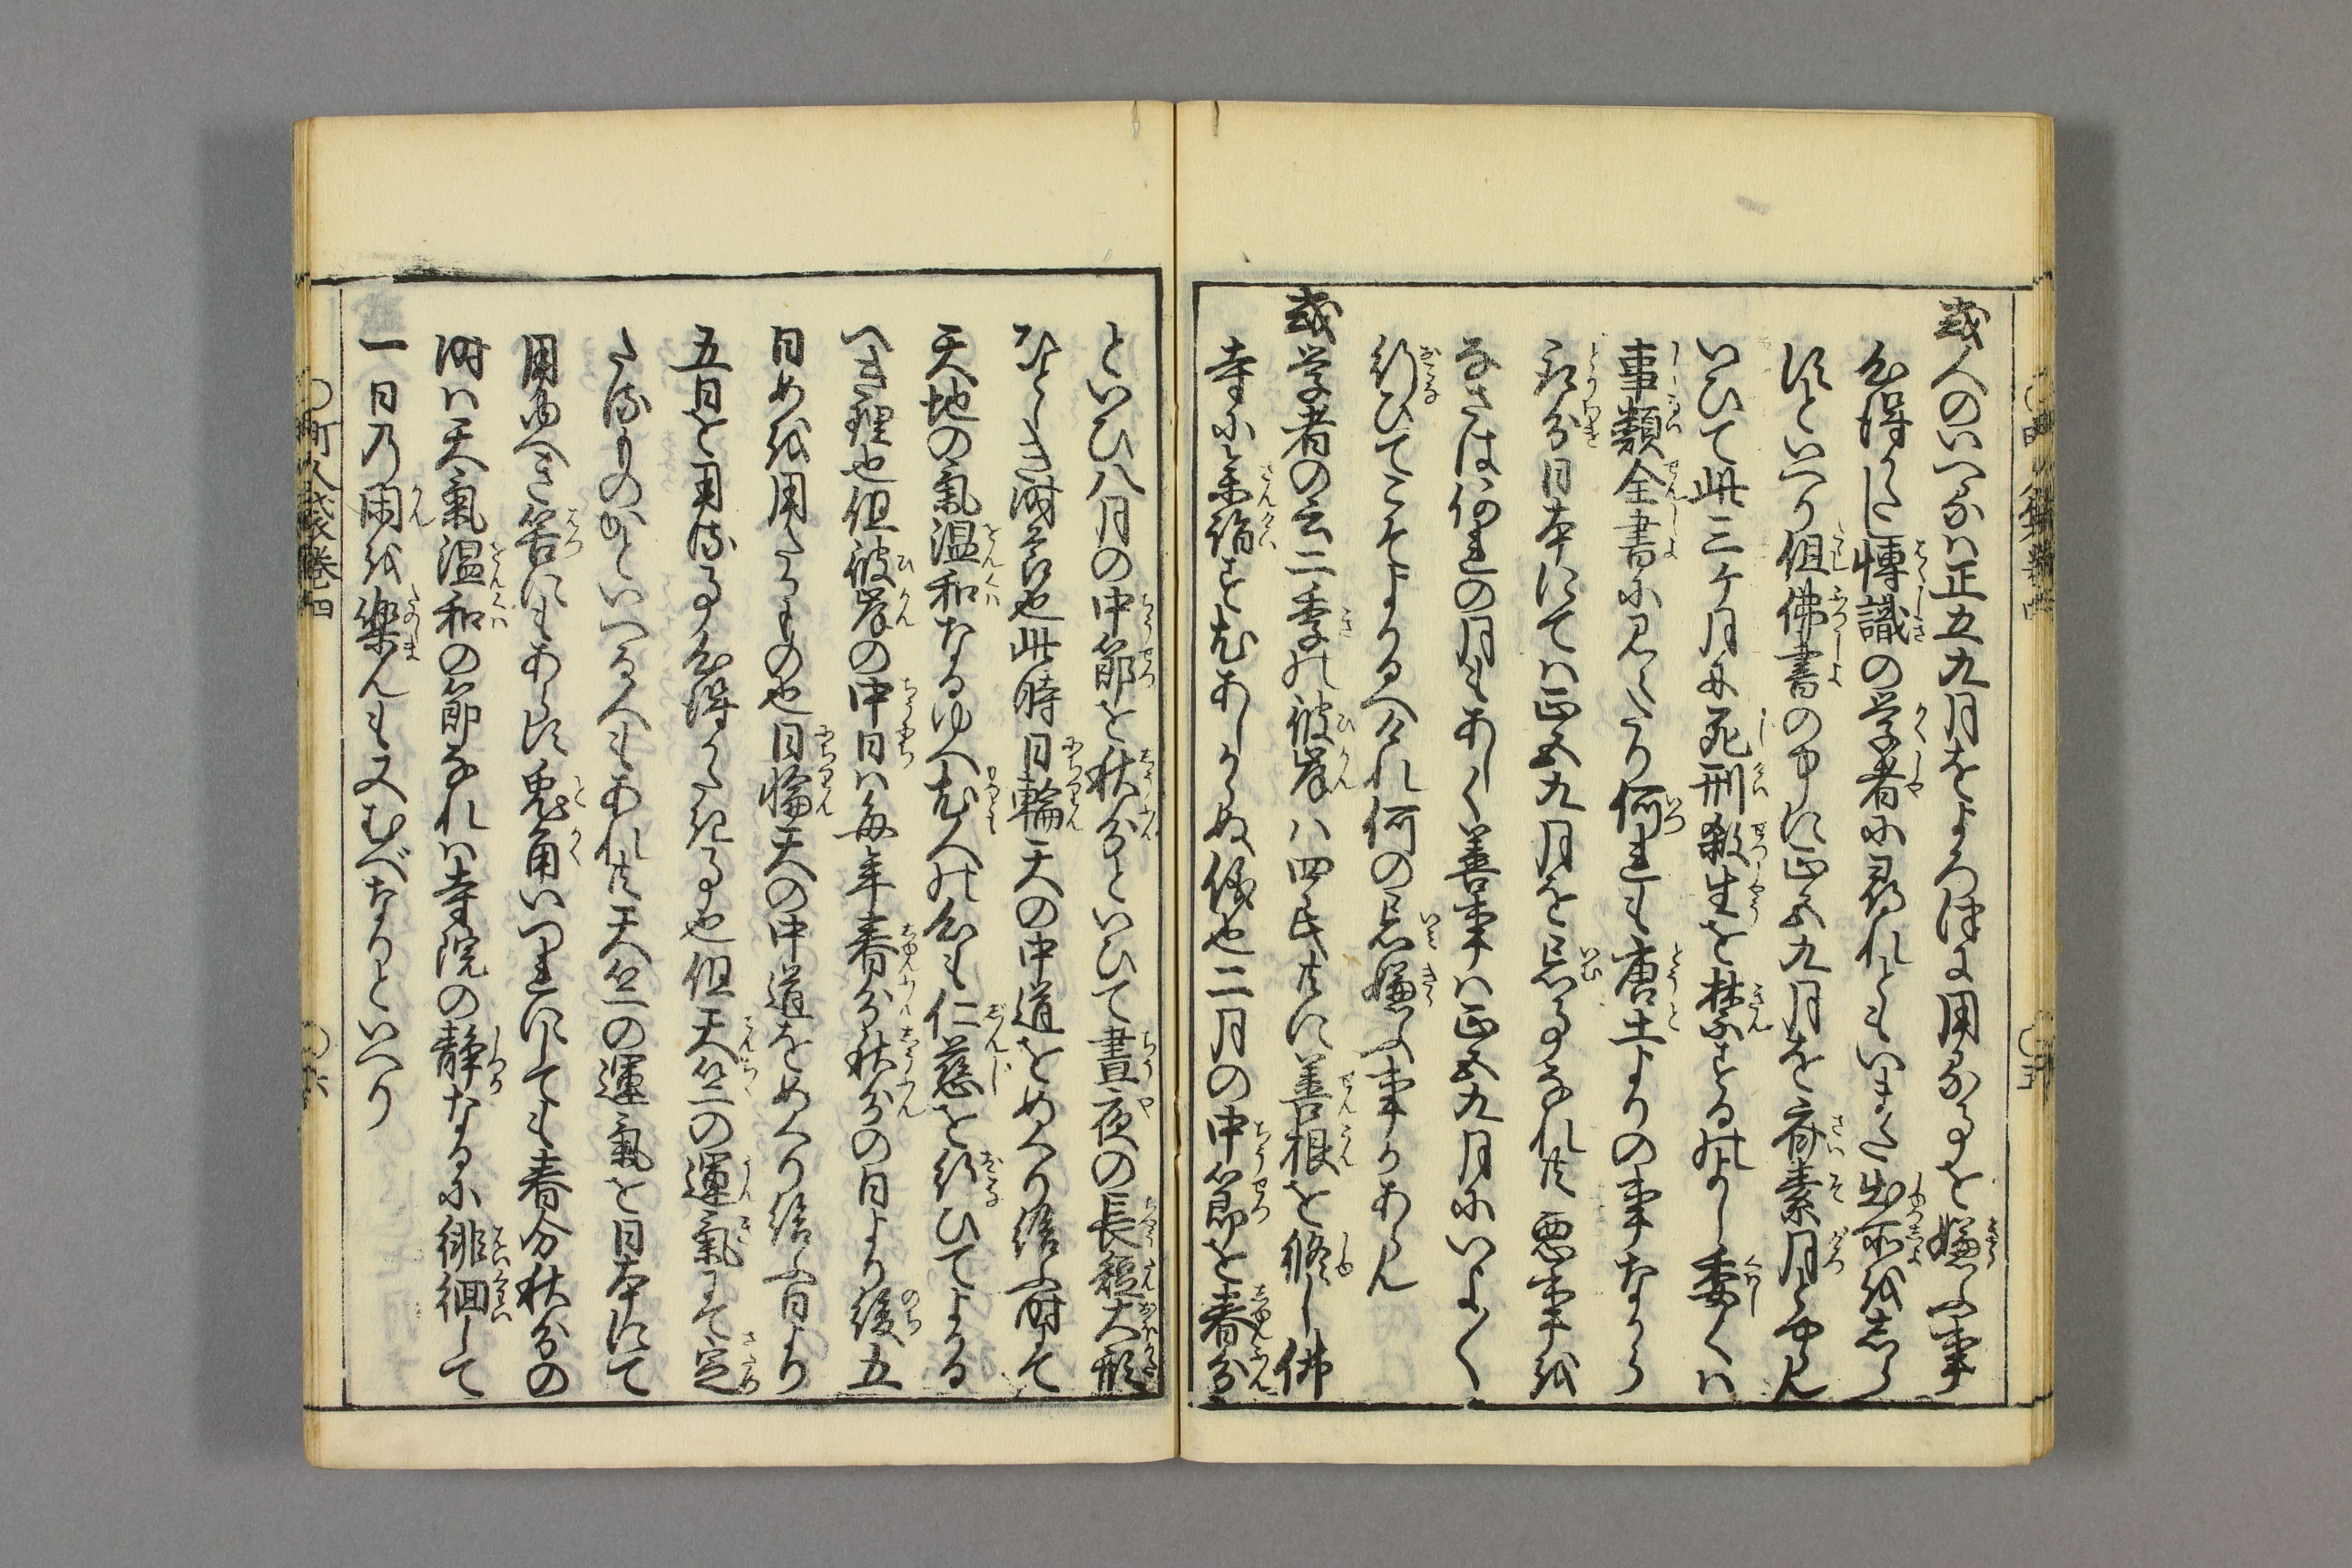 或人のいへるハ正五九月をよろつ
に用る事を嫌ふ事
心得かたく博識の学者に尋れともいまた出所を志ら
すといへり但佛書の中に正五九月を斎素月と
いひて此三ヶ月は死刑殺生を禁するよし委くハ
事類全書に見へたり何れも唐土よりの事なから
取分日本にてハ正五九月を忌事なれ共悪事を
なさは何れの月もあしく善事ハ正五九月にいよ〱
行ひてこそよかるへけれ何の忌嫌ふ事かあらん
或学者の云二季の彼岸ハ四民共に善根を修し佛
寺に参詣する尤あしからぬ儀也二月の中節を春分
といひ八月の中節を秋分といひて晝夜の長短大形
ひとしき時節也此時日輪天の中道をめくり給ふ時にて
天地の氣温和なるゆへ尤人の心も仁慈を行ひてよかる
へき理也但彼岸の中日ハ毎年春分秋分の日より後五
日めを用たるもの也日輪天の中道をめくり給ふ日より
五日を用る事心得かたき事也但天竺の運氣にて定
たるものかといへる人もあれ共天竺の運氣を日本にて
用ゆへき筈にもあらす兎角いつれにしても春分秋分の
時ハ天氣温和の節なれハ寺院の静なるに徘徊して
一日乃閑を樂んも又むべなりといへり
町人袋巻四
六